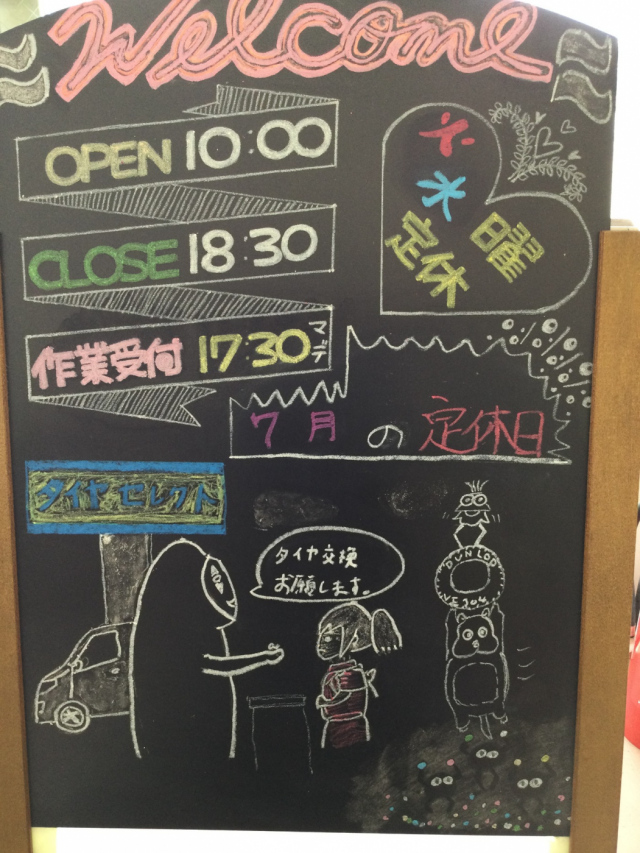 Welcome
OPEN 10:00
CLOSE 18:30
作業受付 17:30マデ
火
水
曜
定休
7月の定休日
タイヤセレクト
タイヤ交換
お願します。
DUNLOP
VE304